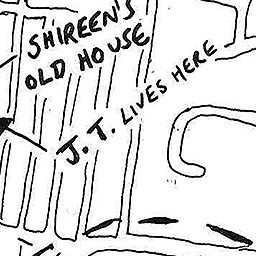 SHIREEN'S
OLD HOUSE
J.T. LIVES HERE